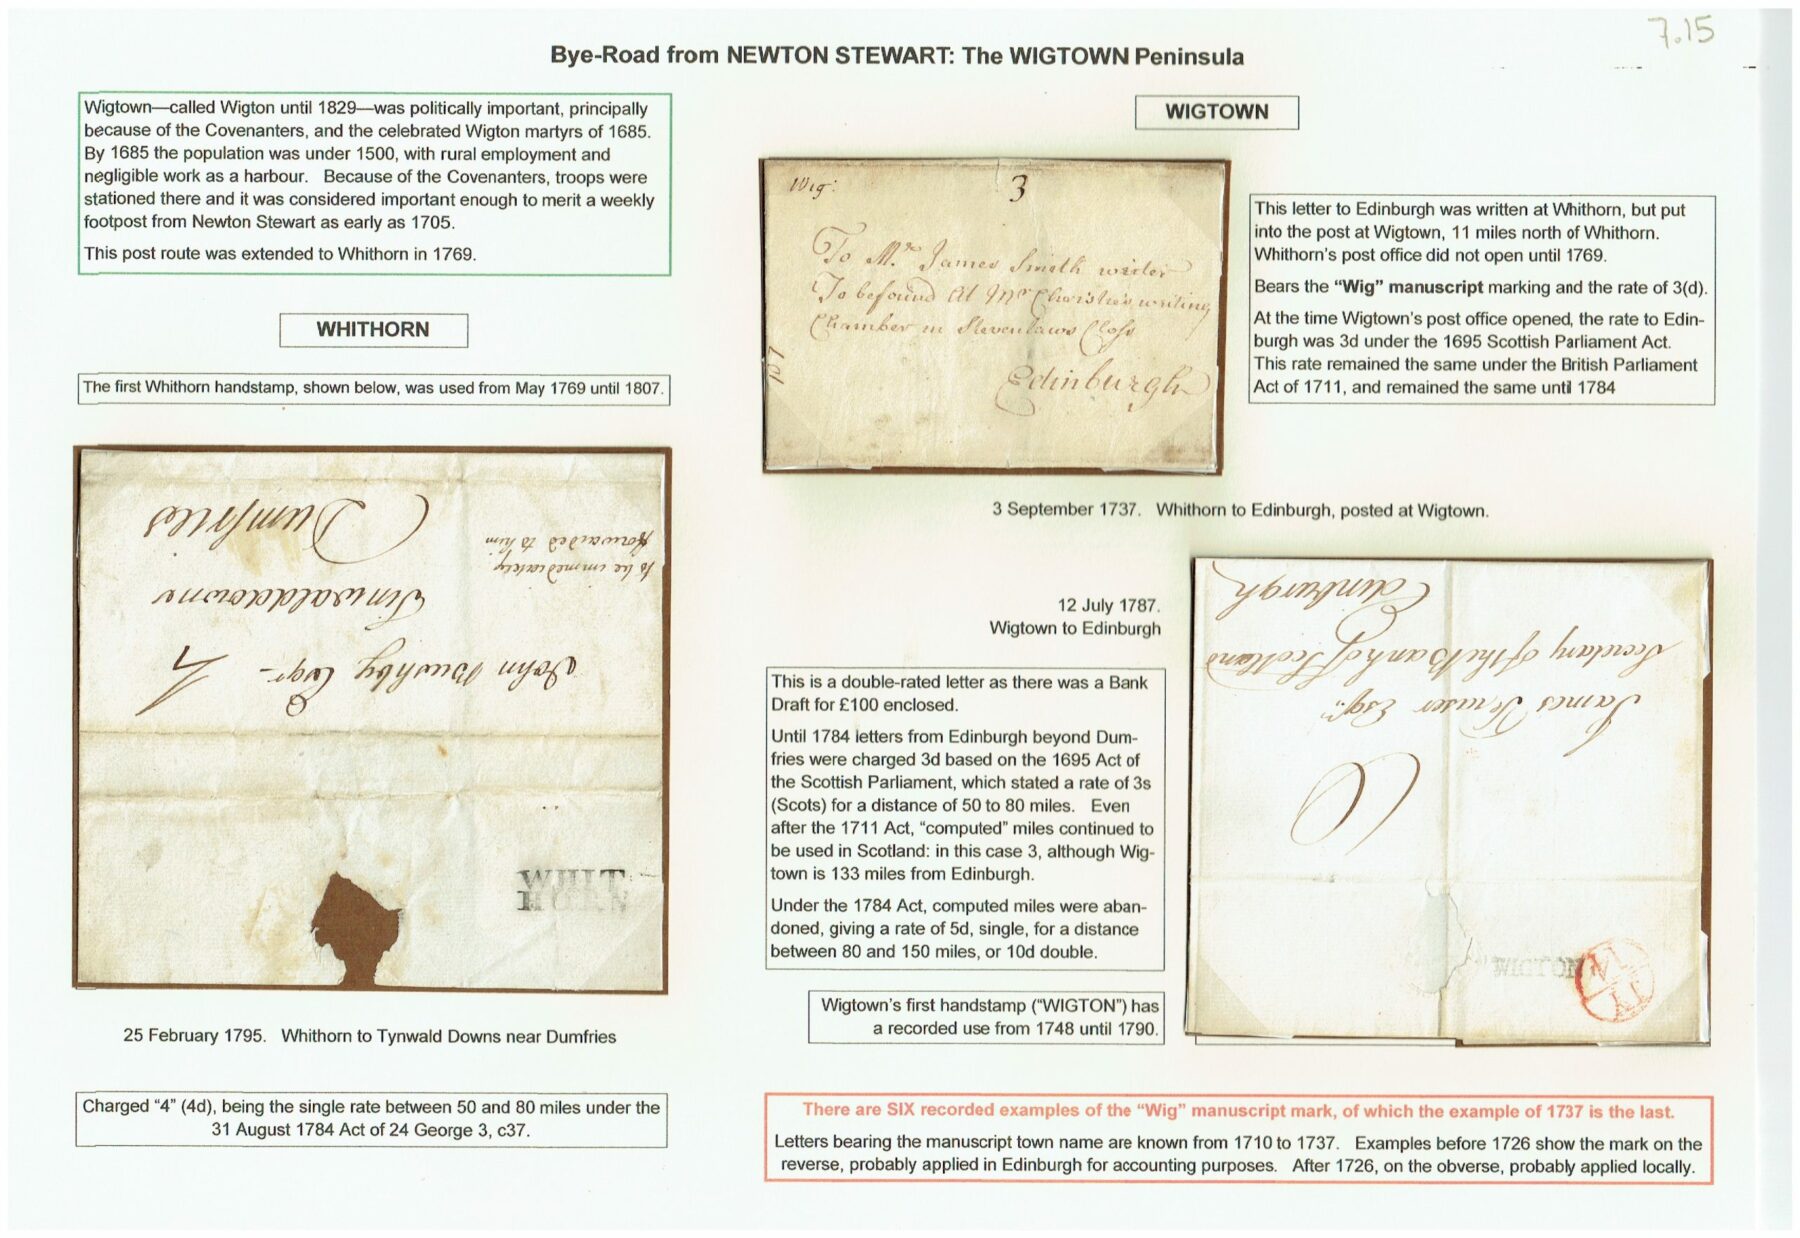 7.15
Bye-Road from NEWTON STEWART: The WIGTOWN Peninsula
Wigtown—called Wigton until 1829—was politically important, principally
because of the Covenanters, and the celebrated Wigton martyrs of 1685.
By 1685 the population was under 1500, with rural employment and
negligible work as a harbour. Because of the Covenanters, troops were
stationed there and it was considered important enough to merit a weekly
footpost from Newton Stewart as early as 1705.
This post route was extended to Whithorn in 1769.
WHITHORN
The first Whithorn handstamp, shown below, was used from May 1769 until 1807.
John Bushby Esqr
Tinwalddowns
Dumfries
to be immediately
forwarded to him
4
WHIT
HORN
25 February 1795. Whithorn to Tynwald Downs near Dumfries
Charged “4” (4d), being the single rate between 50 and 80 miles under the
31 August 1784 Act of 24 George 3, c37.
WIGTOWN
Wig:
3
To Mr. James Smith writer
To be found At Mr Christie's writing
Chamber in Stevenlaws Closs
Edinburgh
This letter to Edinburgh was written at Whithorn, but put
into the post at Wigtown, 11 miles north of Whithorn.
Whithorn's post office did not open until 1769.
Bears the “Wig” manuscript marking and the rate of 3(d).
At the time Wigtown's post office opened, the rate to Edin-
burgh was 3d under the 1695 Scottish Parliament Act.
This rate remained the same under the British Parliament
Act of 1711, and remained the same until 1784
3 September 1737. Whithorn to Edinburgh, posted at Wigtown.
12 July 1787.
Wigtown to Edinburgh
This is a double-rated letter as there was a Bank
Draft for £100 enclosed.
Until 1784 letters from Edinburgh beyond Dum-
fries were charged 3d based on the 1695 Act of
the Scottish Parliament, which stated a rate of 3s
(Scots) for a distance of 50 to 80 miles. Even
after the 1711 Act, “computed” miles continued to
be used in Scotland: in this case 3, although Wig-
town is 133 miles from Edinburgh.
Under the 1784 Act, computed miles were aban-
doned, giving a rate of 5d, single, for a distance
between 80 and 150 miles, or 10d double.
Wigtown's first handstamp (“WIGTON”) has
a recorded use from 1748 until 1790.
James Fraser Esqr.
Secretary of the Bank of Scotland
Edinburgh
WIGTON
There are SIX recorded examples of the “Wig” manuscript mark, of which the example of 1737 is the last.
Letters bearing the manuscript town name are known from 1710 to 1737. Examples before 1726 show the mark on the
reverse, probably applied in Edinburgh for accounting purposes. After 1726, on the obverse, probably applied locally.